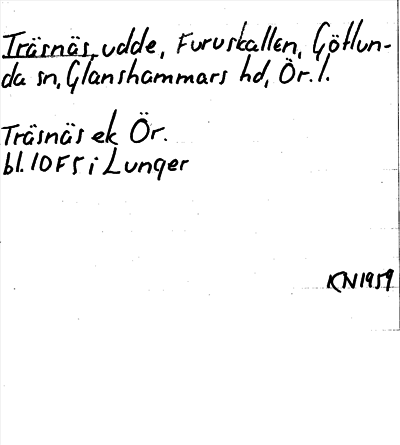 Träsnäs, udde, Furuskallen, Götlun-
da sn, Glanshammars hd, Ör. l.
Träsnäs ek Ör.
bl. 10F5 i Lunger
KN 1959